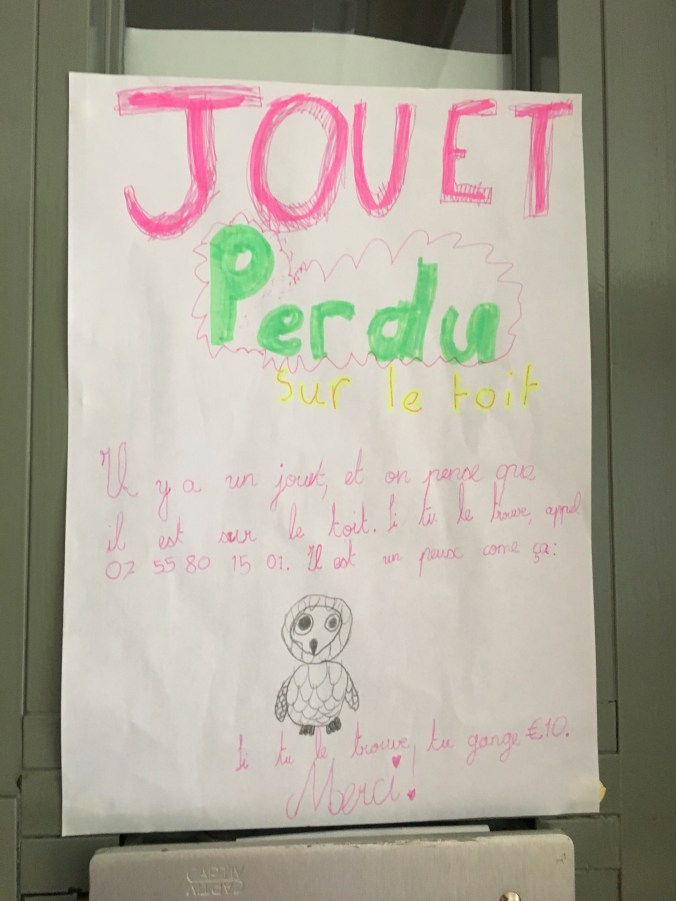 JOUET
Perdu
sur le toit
Il y a un jouet, et on pense que
il est sur le toit. Si tu le trouve, appel
07 55 80 15 01. Il est un peux come ça:
Si tu le trouve, tu gange €10.
Merci!